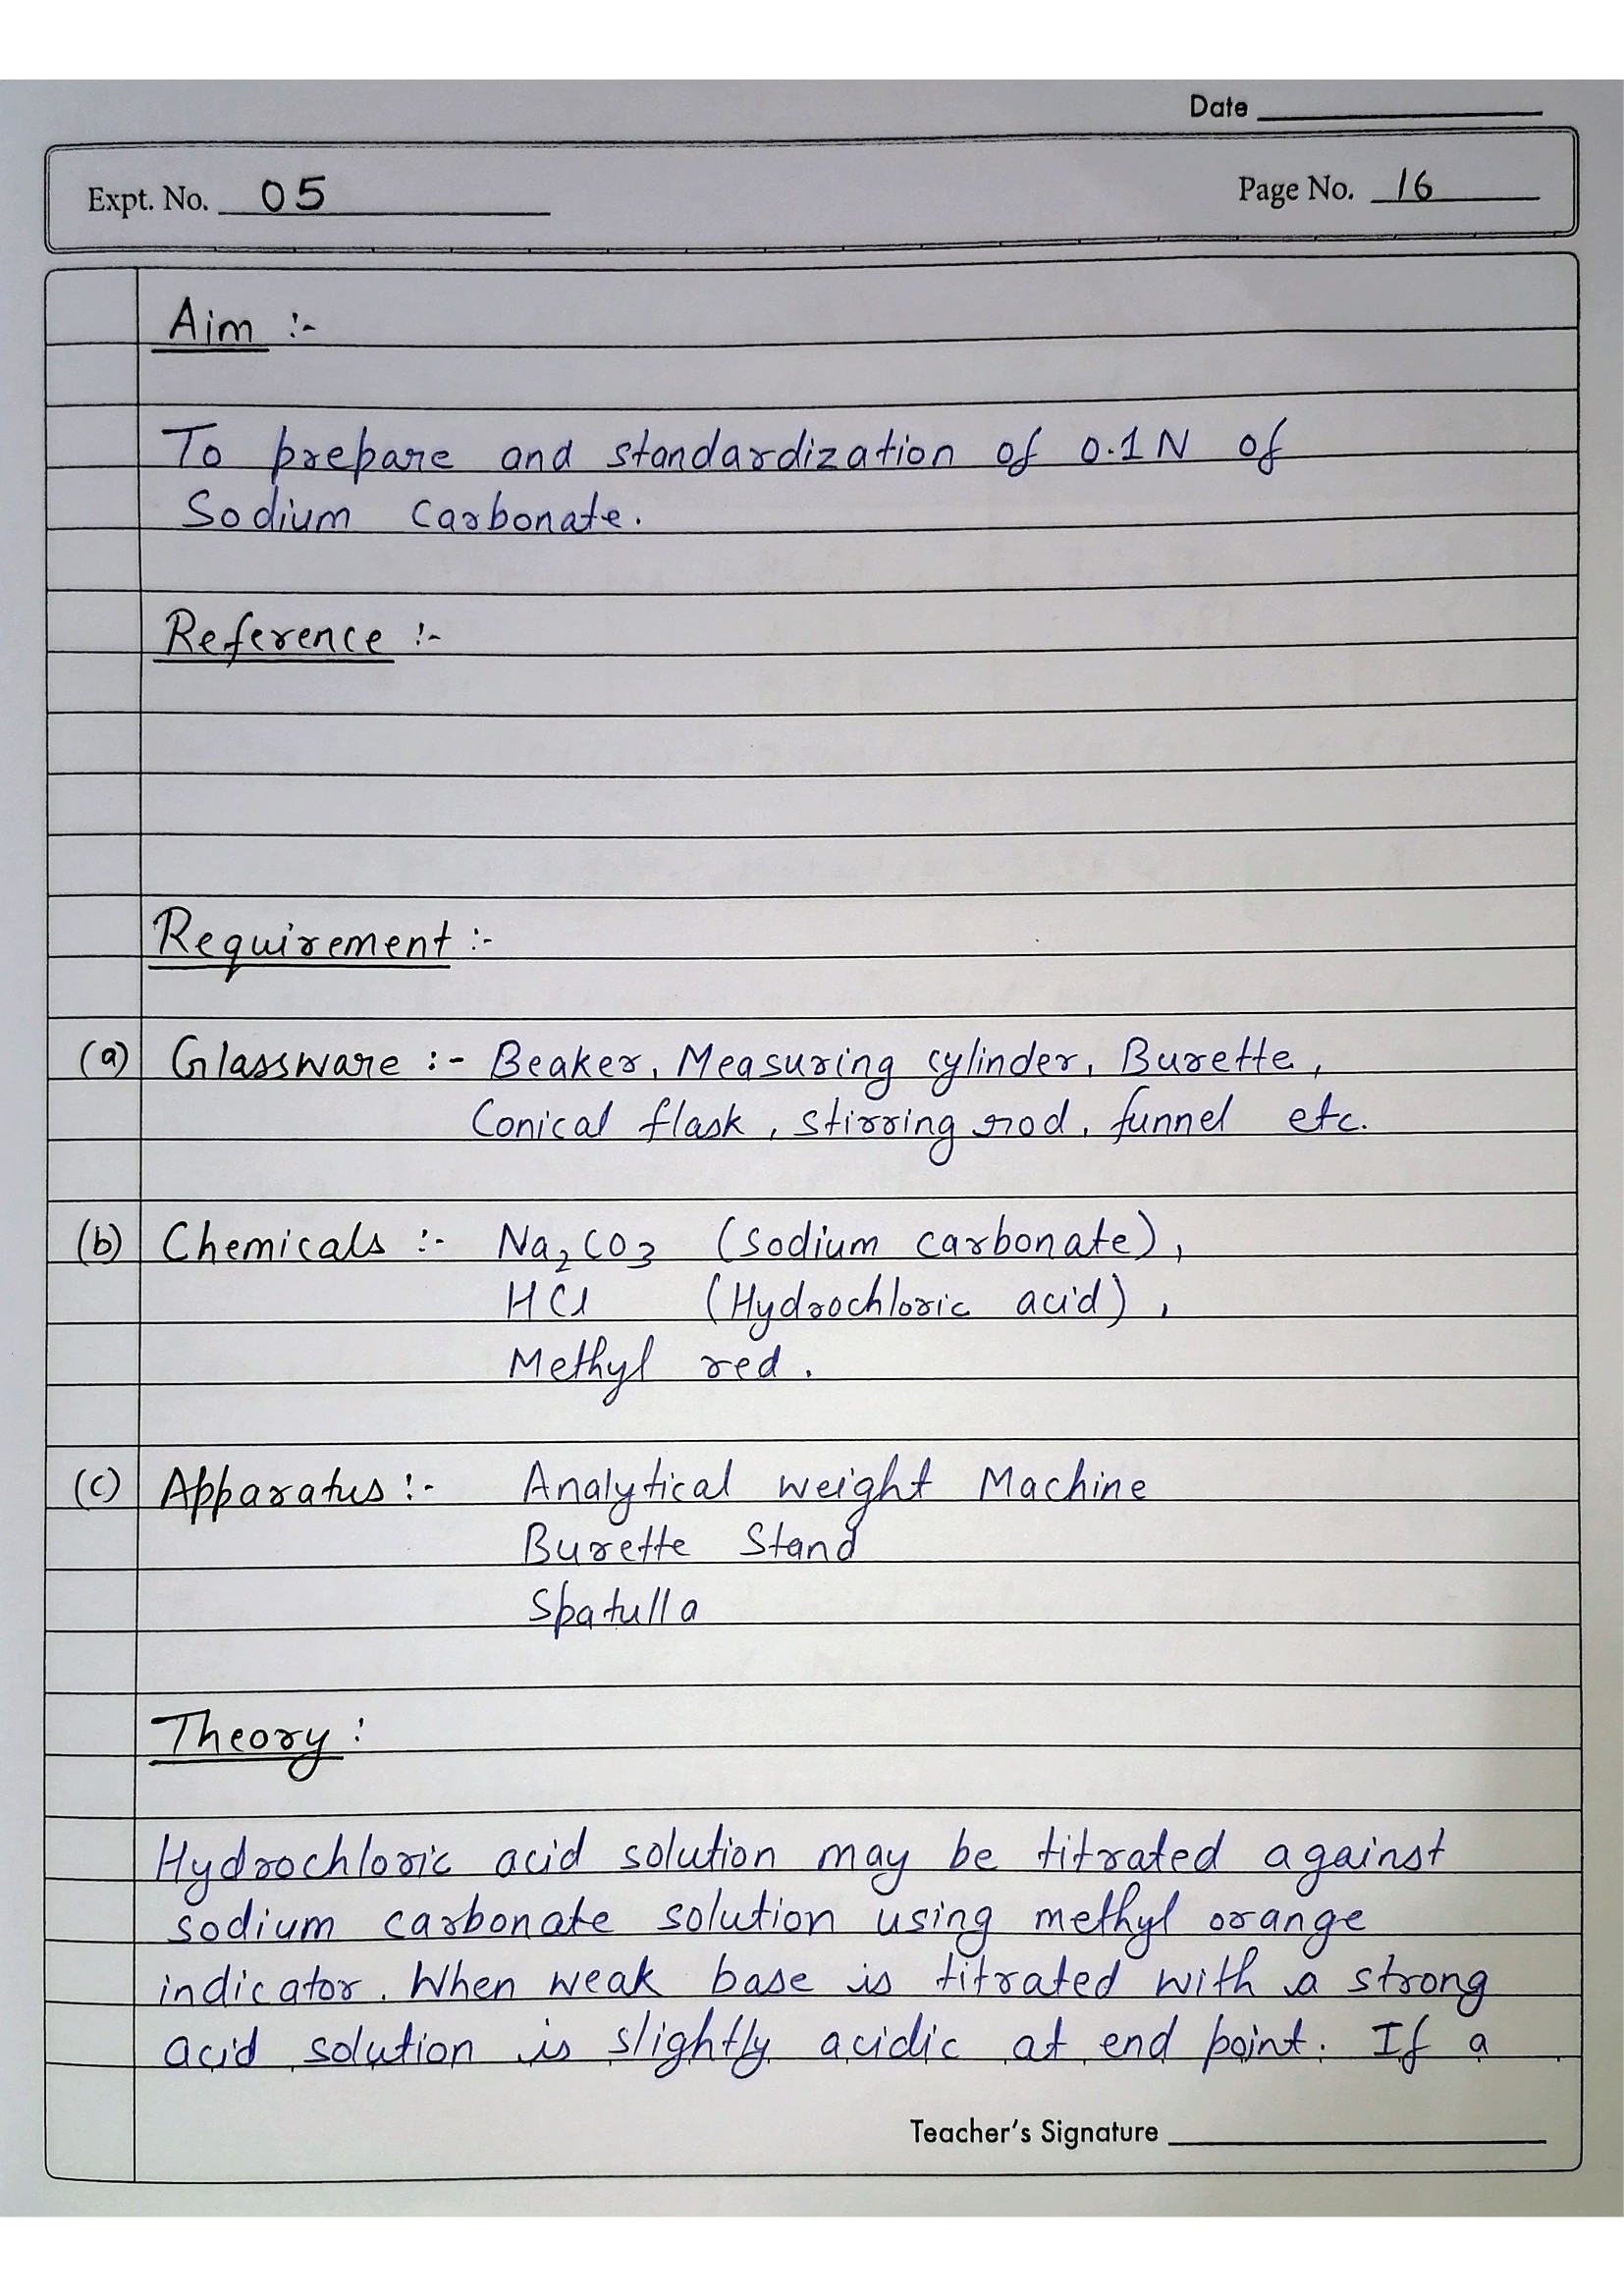 Date
Expt. No. 05
Page No. 16
Aim :-
To prepare and standardization of 0.1N of
Sodium Carbonate.
Reference :-
Requirement :-
(a) Glassware :- Beaker, Measuring cylinder, Burette,
Conical flask, stirring rod, funnel etc.
(b) Chemicals :- Na₂CO₃ (Sodium carbonate),
HCl (Hydrochloric acid),
Methyl red.
(c) Apparatus :- Analytical weight Machine
Burette Stand
Spatulla
Theory :
Hydrochloric acid solution may be titrated against
sodium carbonate solution using methyl orange
indicator. When weak base is titrated with a strong
acid solution is slightly acidic at end point. If a
Teacher's Signature